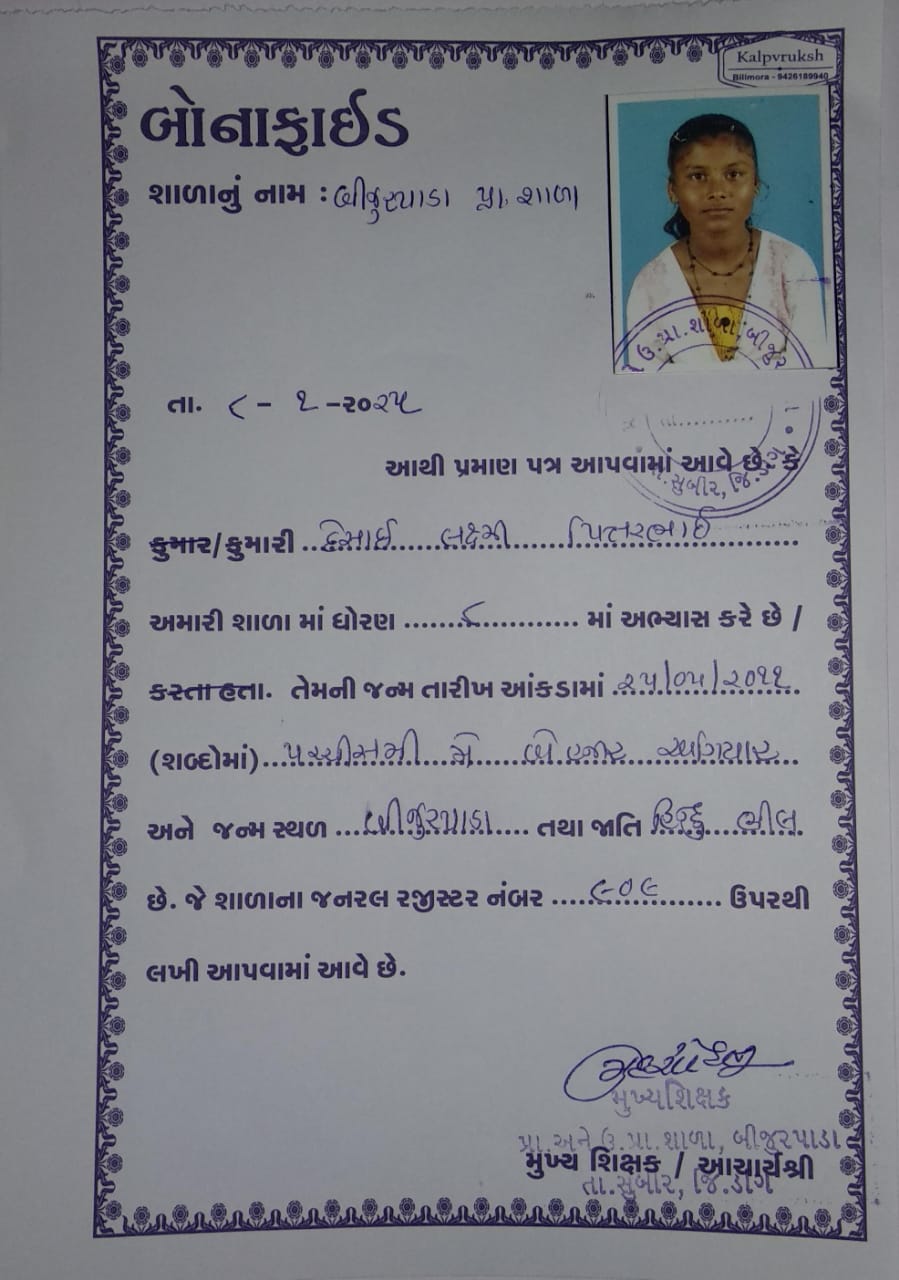 Kalpvruksh
Billmora - 9426189940
બોનાફાઈડ
શાળાનું નામ : બીજુરપાડા પ્રા. શાળા
ઉ.પ્રા.શાળા.બીજુર
તા. ૮ - ૧ -૨૦૨૫
તા.સુબીર, જિ.ડાંગ
આથી પ્રમાણ પત્ર આપવામાં આવે છે. કે
કુમાર/કુમારી ..દેસાઈ લક્ષ્મી પિતરભાઈ
અમારી શાળા માં ધોરણ ......૮............ માં અભ્યાસ કરે છે /
કરતા હતા. તેમની જન્મ તારીખ આંકડામાં ૨૫/૦૫/૨૦૧૧
(શબ્દોમાં) પચ્ચીસમી મે બે હજાર અગિયાર
અને જન્મ સ્થળ ...બીજુરપાડા.... તથા જાતિ હિન્દુ ભીલ
છે. જે શાળાના જનરલ રજીસ્ટર નંબર .....૯૦૯........ ઉપરથી
લખી આપવામાં આવે છે.
મુખ્યશિક્ષક
પ્રા.અને ઉ.પ્રા.શાળા, બીજુરપાડા
મુખ્ય શિક્ષક / આચાર્યશ્રી
તા.સુબીર, જિ.ડાંગ